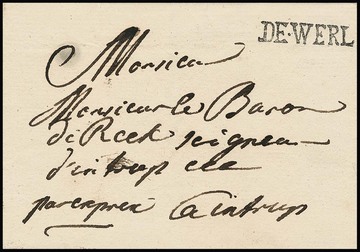 DE·WERL
Monsieur
Monsieur le Baron
de Reck seigneur
d'intrup etc
par exprex a intrup